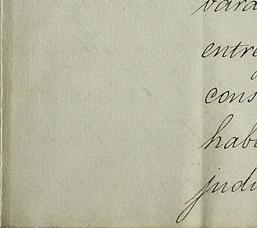 bara
entre
cons
habi
judi